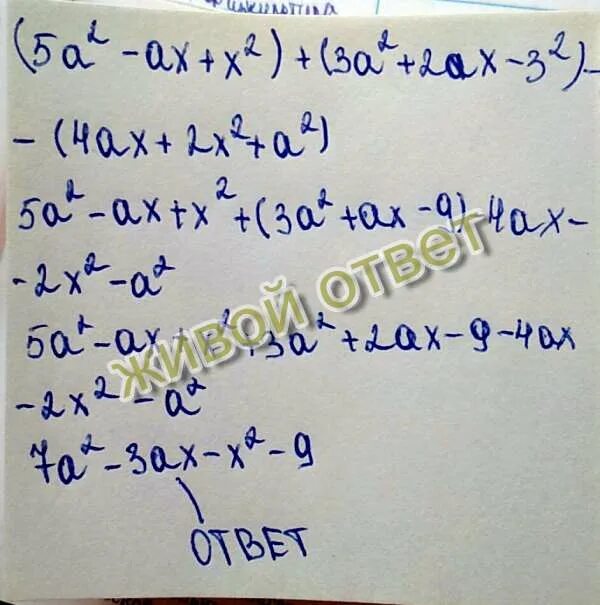 (5a² - ax + x²) + (3a² + 2ax - 3²) -
- (4ax + 2x² + a²)
5a² - ax + x² + (3a² + ax - 9) 4ax -
- 2x² - a²
5a² - ax + x² + 3a² + 2ax - 9 - 4ax
- 2x² - a²
7a² - 3ax - x² - 9
ОТВЕТ
ЖИВОЙ ОТВЕТ